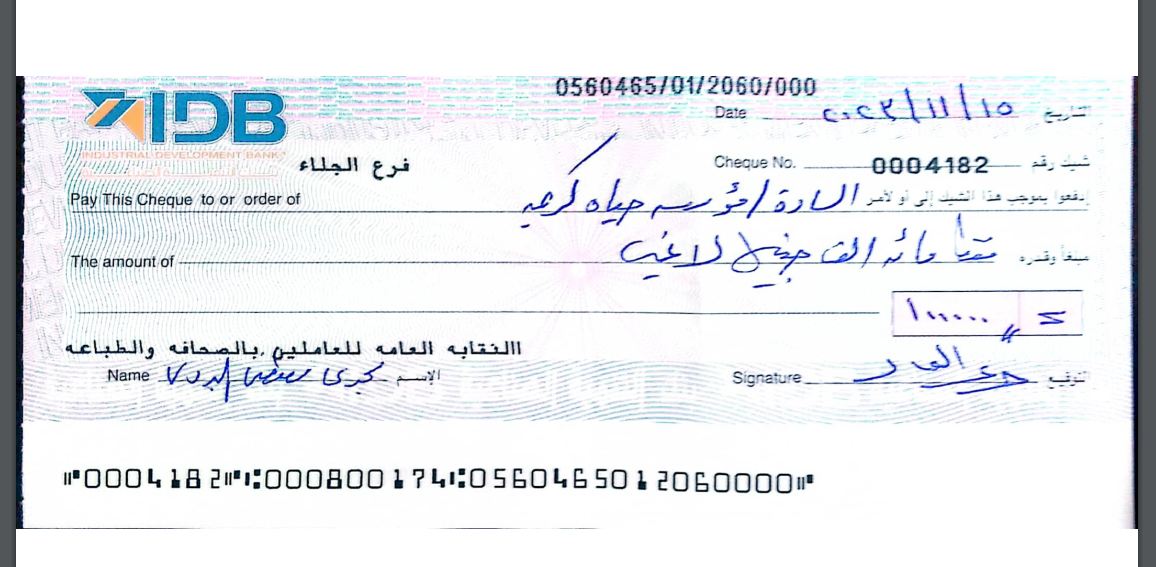 0560465/01/2060/000
IDB
INDUSTRIAL DEVELOPMENT BANK
Date ٢٠٢٣/١١/١٥ تاريخ
فرع الجلاء
Cheque No. 0004182 شيك رقم
Pay This Cheque to or order of السادة / مؤسسه حياه كريمه إدفعوا بموجب هذا الشيك إلى أو لأمر
The amount of فقط مائه الف جنيه لا غير مبلغاً وقدره
١٠٠٠٠٠
االنقابه العامه للعاملين بالصحافه والطباعه
Name مجدى البدوى الإسم
Signature التوقيع
⑈0004182⑈⑆000800174⑆0560465012060000⑈